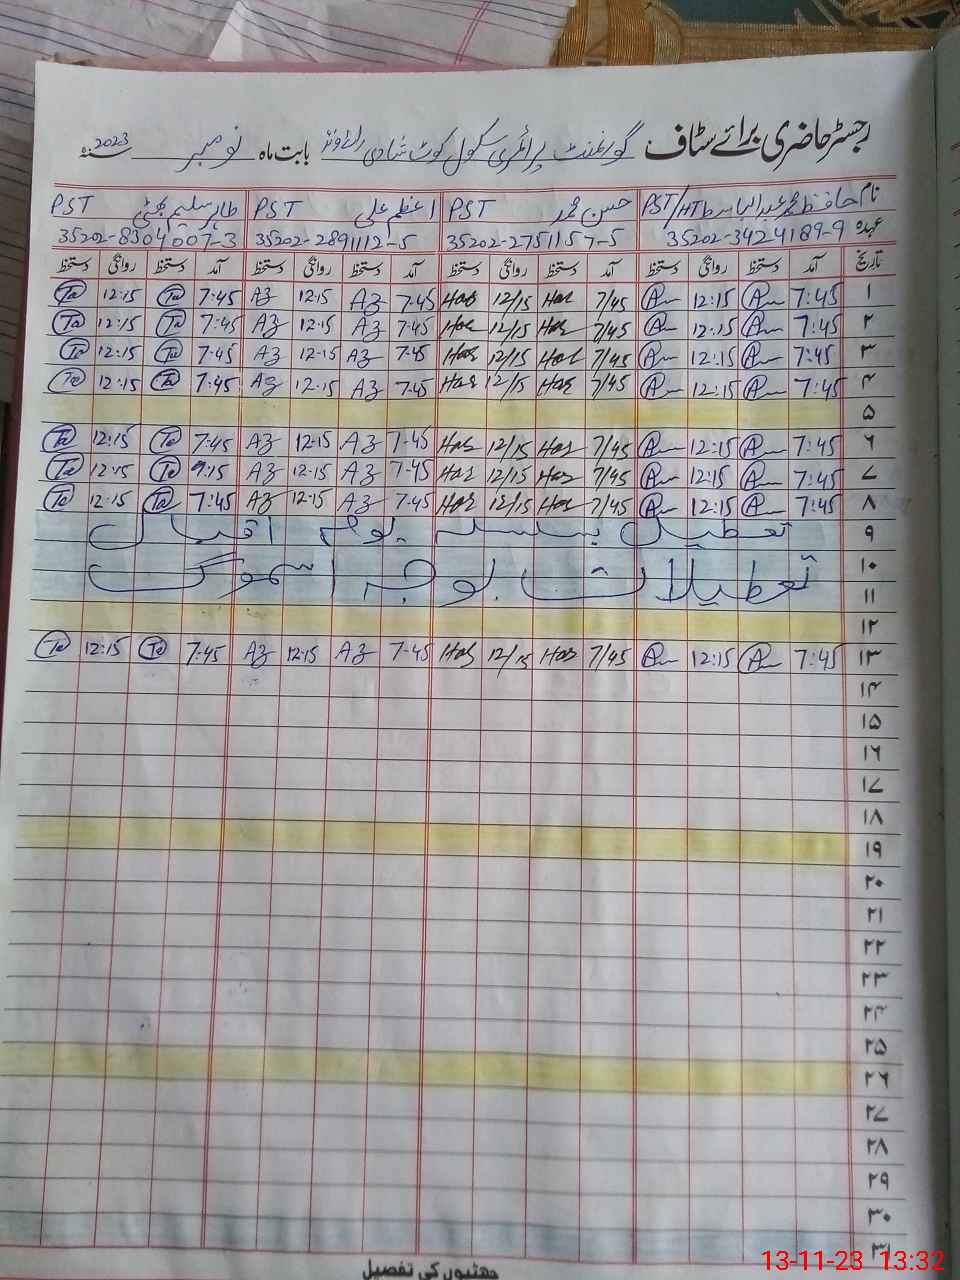 رجسٹر حاضری برائے سٹاف گورنمنٹ پرائمری سکول کوٹ شادی رائے ونڈ بابت ماہ نومبر سنہ 2023
نام حافظ محمد عبدالباسط PST/HT حسن محمد PST اعظم علی PST طاہر سلیم بھٹی PST
عہدہ 35202-3424189-9 35202-2751157-5 35202-2891112-5 35202-8304007-3
تاریخ آمد دستخط روانگی دستخط آمد دستخط روانگی دستخط آمد دستخط روانگی دستخط آمد دستخط روانگی دستخط
۱ 7:45 12:15 7/45 Has 12/15 Has 7:45 Az 12:15 Az 7:45 Ta 12:15 Ta
۲ 7:45 12:15 7/45 Has 12/15 Has 7:45 Az 12:15 Az 7:45 Ta 12:15 Ta
۳ 7:45 12:15 7/45 Has 12/15 Has 7:45 Az 12:15 Az 7:45 Ta 12:15 Ta
۴ 7:45 12:15 7/45 Has 12/15 Has 7:45 Az 12:15 Az 7:45 Ta 12:15 Ta
۵
۶ 7:45 12:15 7/45 Has 12/15 Has 7:45 Az 12:15 Az 7:45 Ta 12:15 Ta
۷ 7:45 12:15 7/45 Has 12/15 Has 7:45 Az 12:15 Az 9:15 Ta 12:15 Ta
۸ 7:45 12:15 7/45 Has 12/15 Has 7:45 Az 12:15 Az 7:45 Ta 12:15 Ta
۹ تعطیل بسلسلہ یوم اقبال
۱۰ تعطیلات بوجہ اسموگ
۱۱
۱۲
۱۳ 7:45 12:15 7/45 Has 12/15 Has 7:45 Az 12:15 Az 7:45 Ta 12:15 Ta
۱۴
۱۵
۱۶
۱۷
۱۸
۱۹
۲۰
۲۱
۲۲
۲۳
۲۴
۲۵
۲۶
۲۷
۲۸
۲۹
۳۰
۳۱
چھٹیوں کی تفصیل
13-11-23 13:32